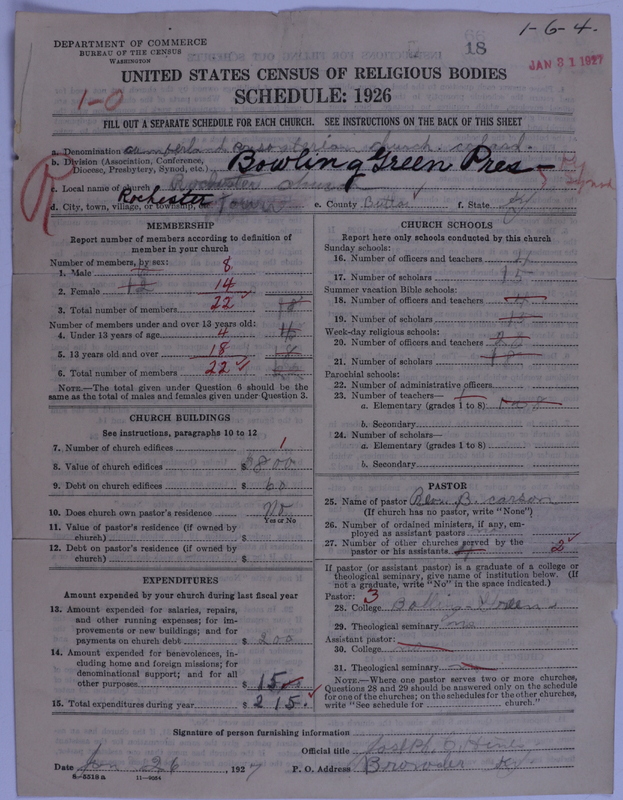 1-6-4.
18
DEPARTMENT OF COMMERCE
BUREAU OF THE CENSUS
WASHINGTON
JAN 31 1927
UNITED STATES CENSUS OF RELIGIOUS BODIES
1-0
SCHEDULE: 1926
FILL OUT A SEPARATE SCHEDULE FOR EACH CHURCH. SEE INSTRUCTIONS ON THE BACK OF THIS SHEET
a. Denomination church
b. Division (Association, Conference, Diocese, Presbytery, Synod, etc.) Bowling Green Pres-
Synod
c. Local name of church Rochester church
d. City, town, village, or township, Rochester Town
e. County Butler f. State Ky
MEMBERSHIP
Report number of members according to definition of
member in your church
Number of members, by sex:
1. Male 8
2. Female 12 14
3. Total number of members 22 18
Number of members under and over 13 years old:
4. Under 13 years of age 4
5. 13 years old and over 18
6. Total number of members 22
NOTE.—The total given under Question 6 should be
same as the total of males and females given under Question 3.
CHURCH BUILDINGS
See instructions, paragraphs 10 to 12
7. Number of church edifices 1
8. Value of church edifices $ 800
9. Debt on church edifices $ 60
10. Does church own pastor's residence No
Yes or No
11. Value of pastor's residence (if owned by
church) $
12. Debt on pastor's residence (if owned by
church) $
EXPENDITURES
Amount expended by your church during last fiscal year
13. Amount expended for salaries, repairs,
and other running expenses; for im-
provements or new buildings; and for
payments on church debt $ 200
14. Amount expended for benevolences, in-
cluding home and foreign missions; for
denominational support; and for all
other purposes $ 15
15. Total expenditures during year $ 215.
CHURCH SCHOOLS
Report here only schools conducted by this church
Sunday schools:
16. Number of officers and teachers 4
17. Number of scholars 15
Summer vacation Bible schools:
18. Number of officers and teachers
19. Number of scholars 15
Week-day religious schools:
20. Number of officers and teachers
21. Number of scholars 18
Parochial schools:
22. Number of administrative officers
23. Number of teachers—
a. Elementary (grades 1 to 8)
b. Secondary
24. Number of scholars—
a. Elementary (grades 1 to 8)
b. Secondary
PASTOR
25. Name of pastor B. Carson
(If church has no pastor, write "None")
26. Number of ordained ministers, if any, em-
ployed as assistant pastors
27. Number of other churches served by the
pastor or his assistants 2
If pastor (or assistant pastor) is a graduate of a college or
theological seminary, give name of institution below. (If
not a graduate, write "No" in the space indicated.)
Pastor: 3
28. College Bowling Green
29. Theological seminary no
Assistant pastor:
30. College
31. Theological seminary
NOTE.—Where one pastor serves two or more churches,
Questions 28 and 29 should be answered only on the schedule
for one of the churches; on the schedules for the other churches,
write "See schedule for church."
Signature of person furnishing information
Official title Hines
Date Jan 26, 1927 P. O. Address Browder Ky
8-5518 a 11-9084